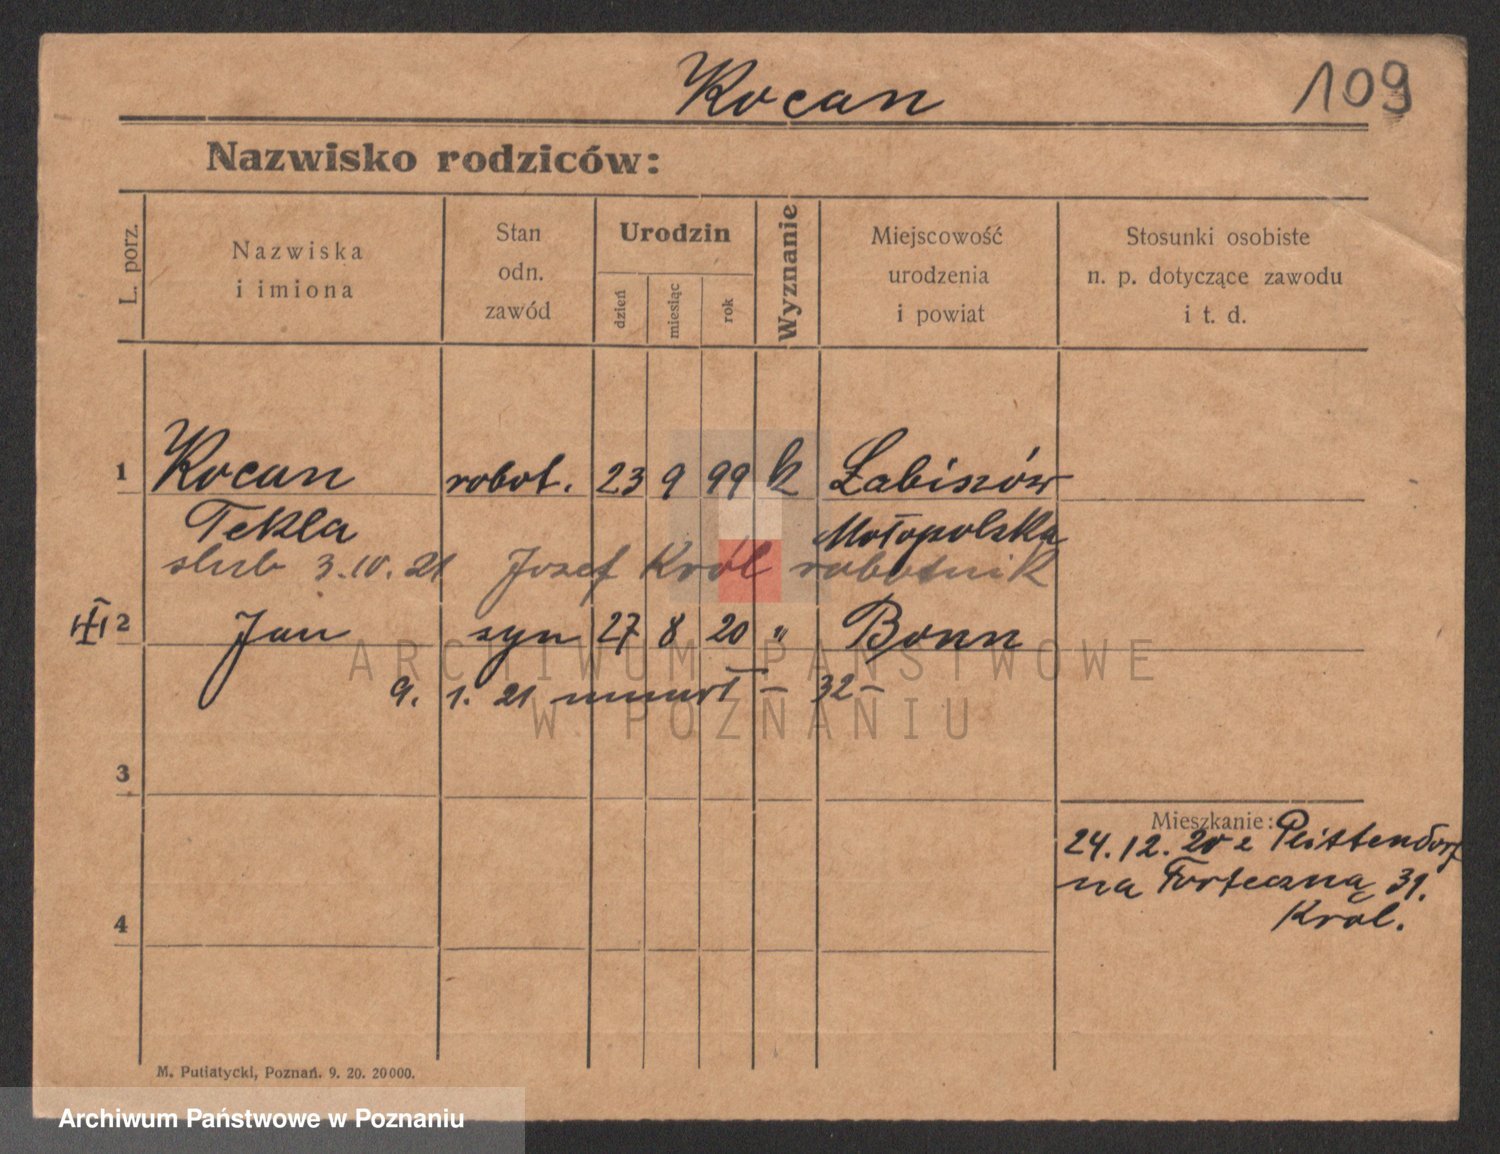 Kocan
109
Nazwisko rodziców:
L. porz.
Nazwiska
i imiona
Stan
odn.
zawód
Urodzin
dzień
miesiąc
rok
Wyznanie
Miejscowość
urodzenia
i powiat
Stosunki osobiste
n. p. dotyczące zawodu
i t. d.
1 Kocan robot. 23 9 99 k Łabiszów
Tekla Małopolska
slub 3.IV.21 Jozef Król robotnik
2 Jan syn 27 8 20 " Bonn
9. 1. 21 umarł – 32 –
3
Mieszkanie:
24.12.20 z Plittendorf
na Forteczną 31.
Król.
4
M. Putiatycki, Poznań. 9. 20. 20000.
ARCHIWUM PAŃSTWOWE
W POZNANIU
Archiwum Państwowe w Poznaniu